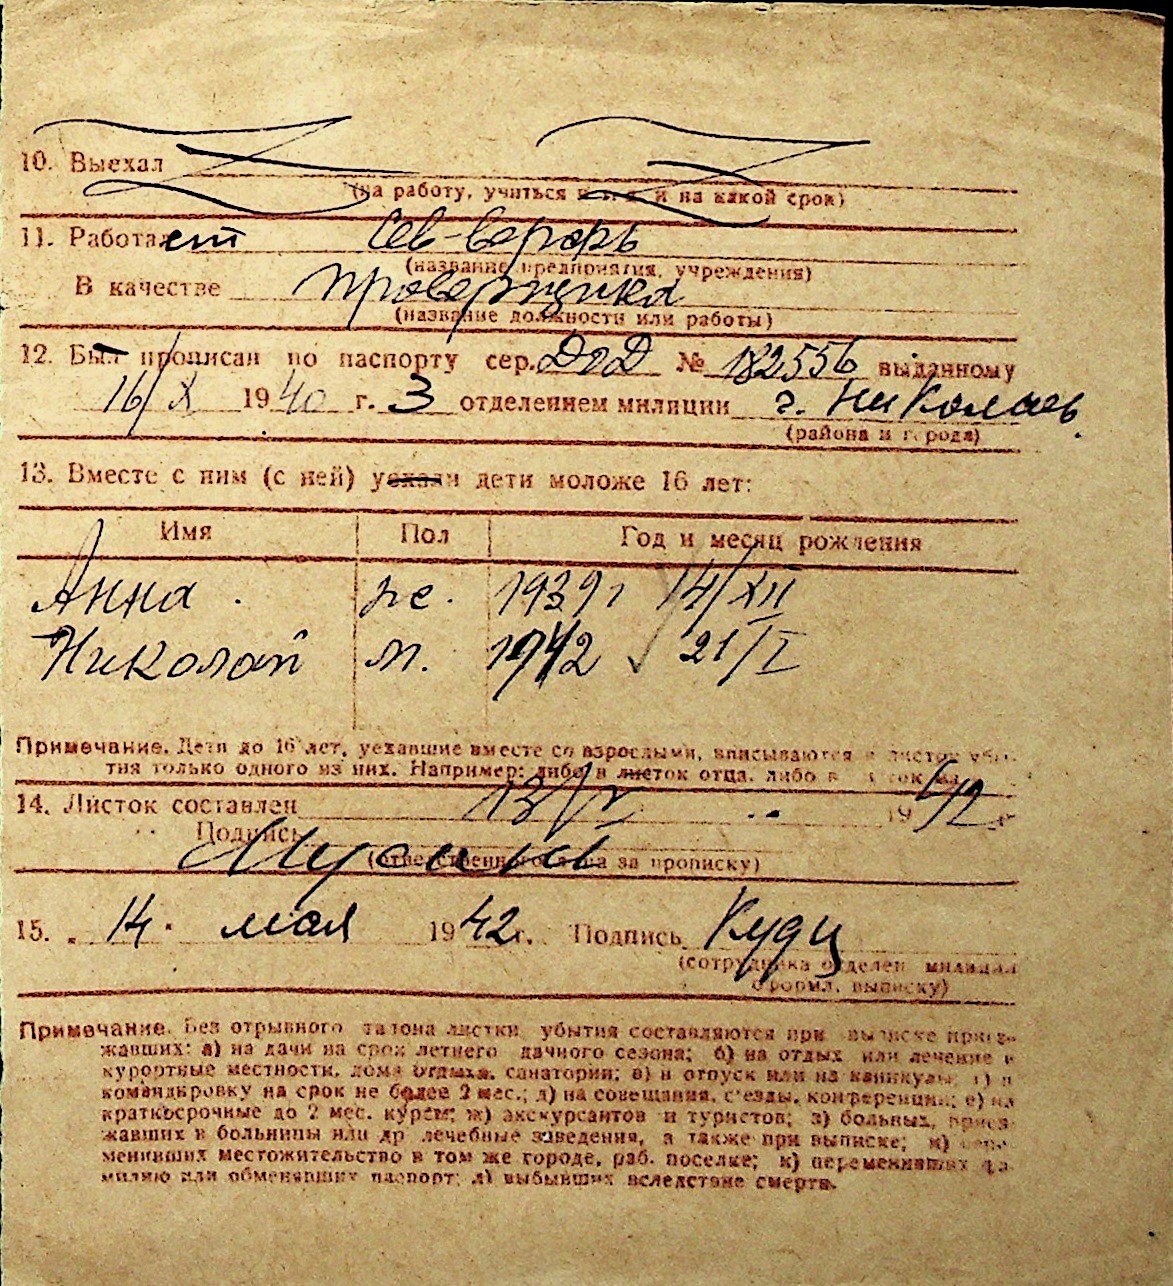 10. Выехал
(на работу, учиться и т. д. и на какой срок)
11. Работает Сев-верфь
(название предприятия, учреждения)
В качестве проверщика
(название должности или работы)
12. Был прописан по паспорту сер. № 182556 выданному
16/X 1940 г. 3 отделением милиции г. Николаев.
(района и города)
13. Вместе с ним (с ней) уехали дети моложе 16 лет:
Имя Пол Год и месяц рождения
Анна ж. 1939 г 14/XII
Николай м. 1942 21/I
Примечание. Дети до 16 лет, уехавшие вместе со взрослыми, вписываются в листок убы-
тия только одного из них. Например: либо в листок отца, либо в листок
14. Листок составлен 13/V 1942 г.
Подпись
(ответственного лица за прописку)
15. 14. мая 1942 г. Подпись Кудц
(сотрудника отделен. милиции
оформл. выписку)
Примечание. Без отрывного талона листки убытия составляются при выписке приез-
жавших: а) на дачи на срок летнего дачного сезона; б) на отдых или лечение в
курортные местности, дома отдыха, санатории; в) в отпуск или на каникулы; г) в
командировку на срок не более 2 мес.; д) на совещания, съезды, конференции; е) на
краткосрочные до 2 мес. курсы; ж) экскурсантов и туристов; з) больных, приез-
жавших в больницы или др лечебные заведения, а также при выписке; и) пере-
менивших местожительство в том же городе, раб. поселке; к) переменивших фа-
милию или обменявших паспорт; л) выбывших вследствие смерти.